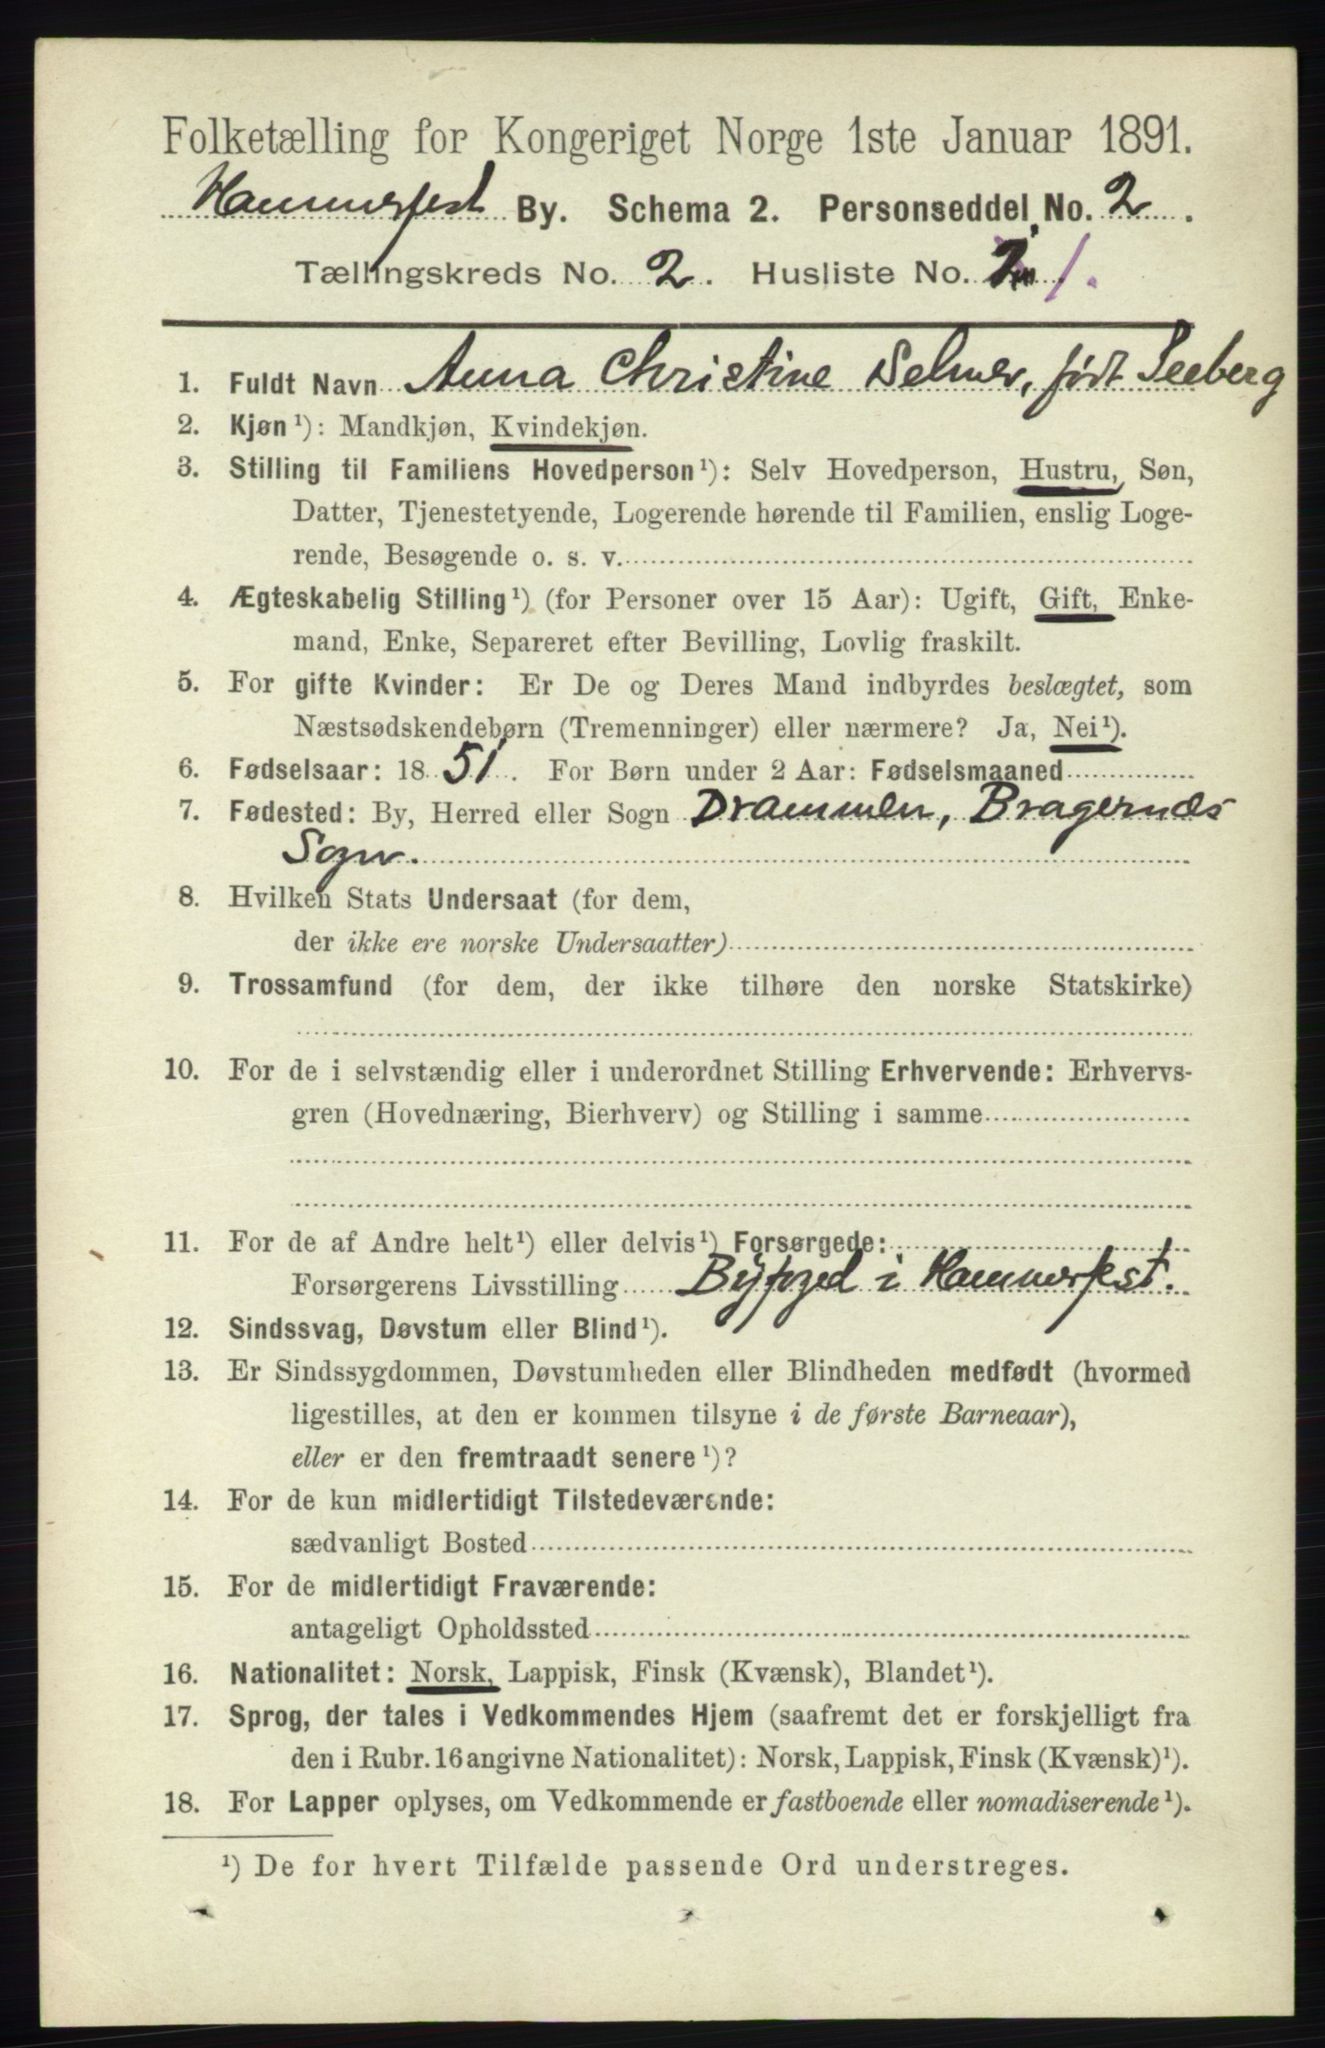 Folketælling for Kongeriget Norge 1ste Januar 1891.
Hammerfest By. Schema 2. Personseddel No. 2.
Tællingskreds No. 2. Husliste No. 1.
1. Fuldt Navn Anna Christine Selmer, født Seeberg
2. Kjøn¹): Mandkjøn, Kvindekjøn.
3. Stilling til Familiens Hovedperson¹): Selv Hovedperson, Hustru, Søn,
Datter, Tjenestetyende, Logerende hørende til Familien, enslig Loge-
rende, Besøgende o. s. v.
4. Ægteskabelig Stilling¹) (for Personer over 15 Aar): Ugift, Gift, Enke-
mand, Enke, Separeret efter Bevilling, Lovlig fraskilt.
5. For gifte Kvinder: Er De og Deres Mand indbyrdes beslægtet, som
Næstsødskendebørn (Tremenninger) eller nærmere? Ja, Nei¹).
6. Fødselsaar: 1851. For Børn under 2 Aar: Fødselsmaaned
7. Fødested: By, Herred eller Sogn Drammen, Bragernæs
Sogn.
8. Hvilken Stats Undersaat (for dem,
der ikke ere norske Undersaatter)
9. Trossamfund (for dem, der ikke tilhøre den norske Statskirke)
10. For de i selvstændig eller i underordnet Stilling Erhvervende: Erhvervs-
gren (Hovednæring, Bierhverv) og Stilling i samme
11. For de af Andre helt¹) eller delvis¹) Forsørgede:
Forsørgerens Livsstilling Byfoged i Hammerfest.
12. Sindssvag, Døvstum eller Blind¹).
13. Er Sindssygdommen, Døvstumheden eller Blindheden medfødt (hvormed
ligestilles, at den er kommen tilsyne i de første Barneaar),
eller er den fremtraadt senere¹)?
14. For de kun midlertidigt Tilstedeværende:
sædvanligt Bosted
15. For de midlertidigt Fraværende:
antageligt Opholdssted
16. Nationalitet: Norsk, Lappisk, Finsk (Kvænsk), Blandet¹).
17. Sprog, der tales i Vedkommendes Hjem (saafremt det er forskjelligt fra
den i Rubr. 16 angivne Nationalitet): Norsk, Lappisk, Finsk (Kvænsk)¹).
18. For Lapper oplyses, om Vedkommende er fastboende eller nomadiserende¹).
¹) De for hvert Tilfælde passende Ord understreges.